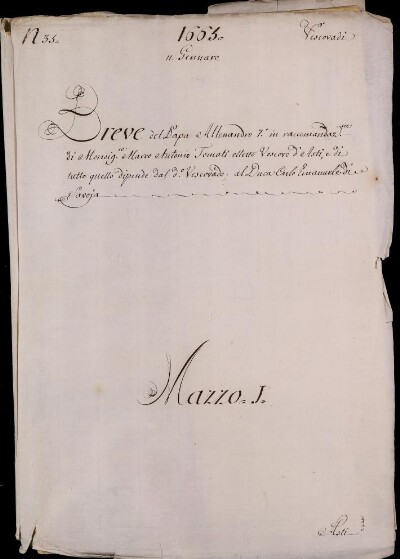 N 35.
1665.
Vescovadi
11. Gennaro
Breve del Papa Alessandro 7.º in raccomandaz.ne
di Monsig.re Marco Antonio Tomati eletto Vescovo d'Asti, e di
tutto quello dipende dal d.º Vescovado; al Duca Carlo Emanuele di
Savoja
Mazzo. I.
Asti